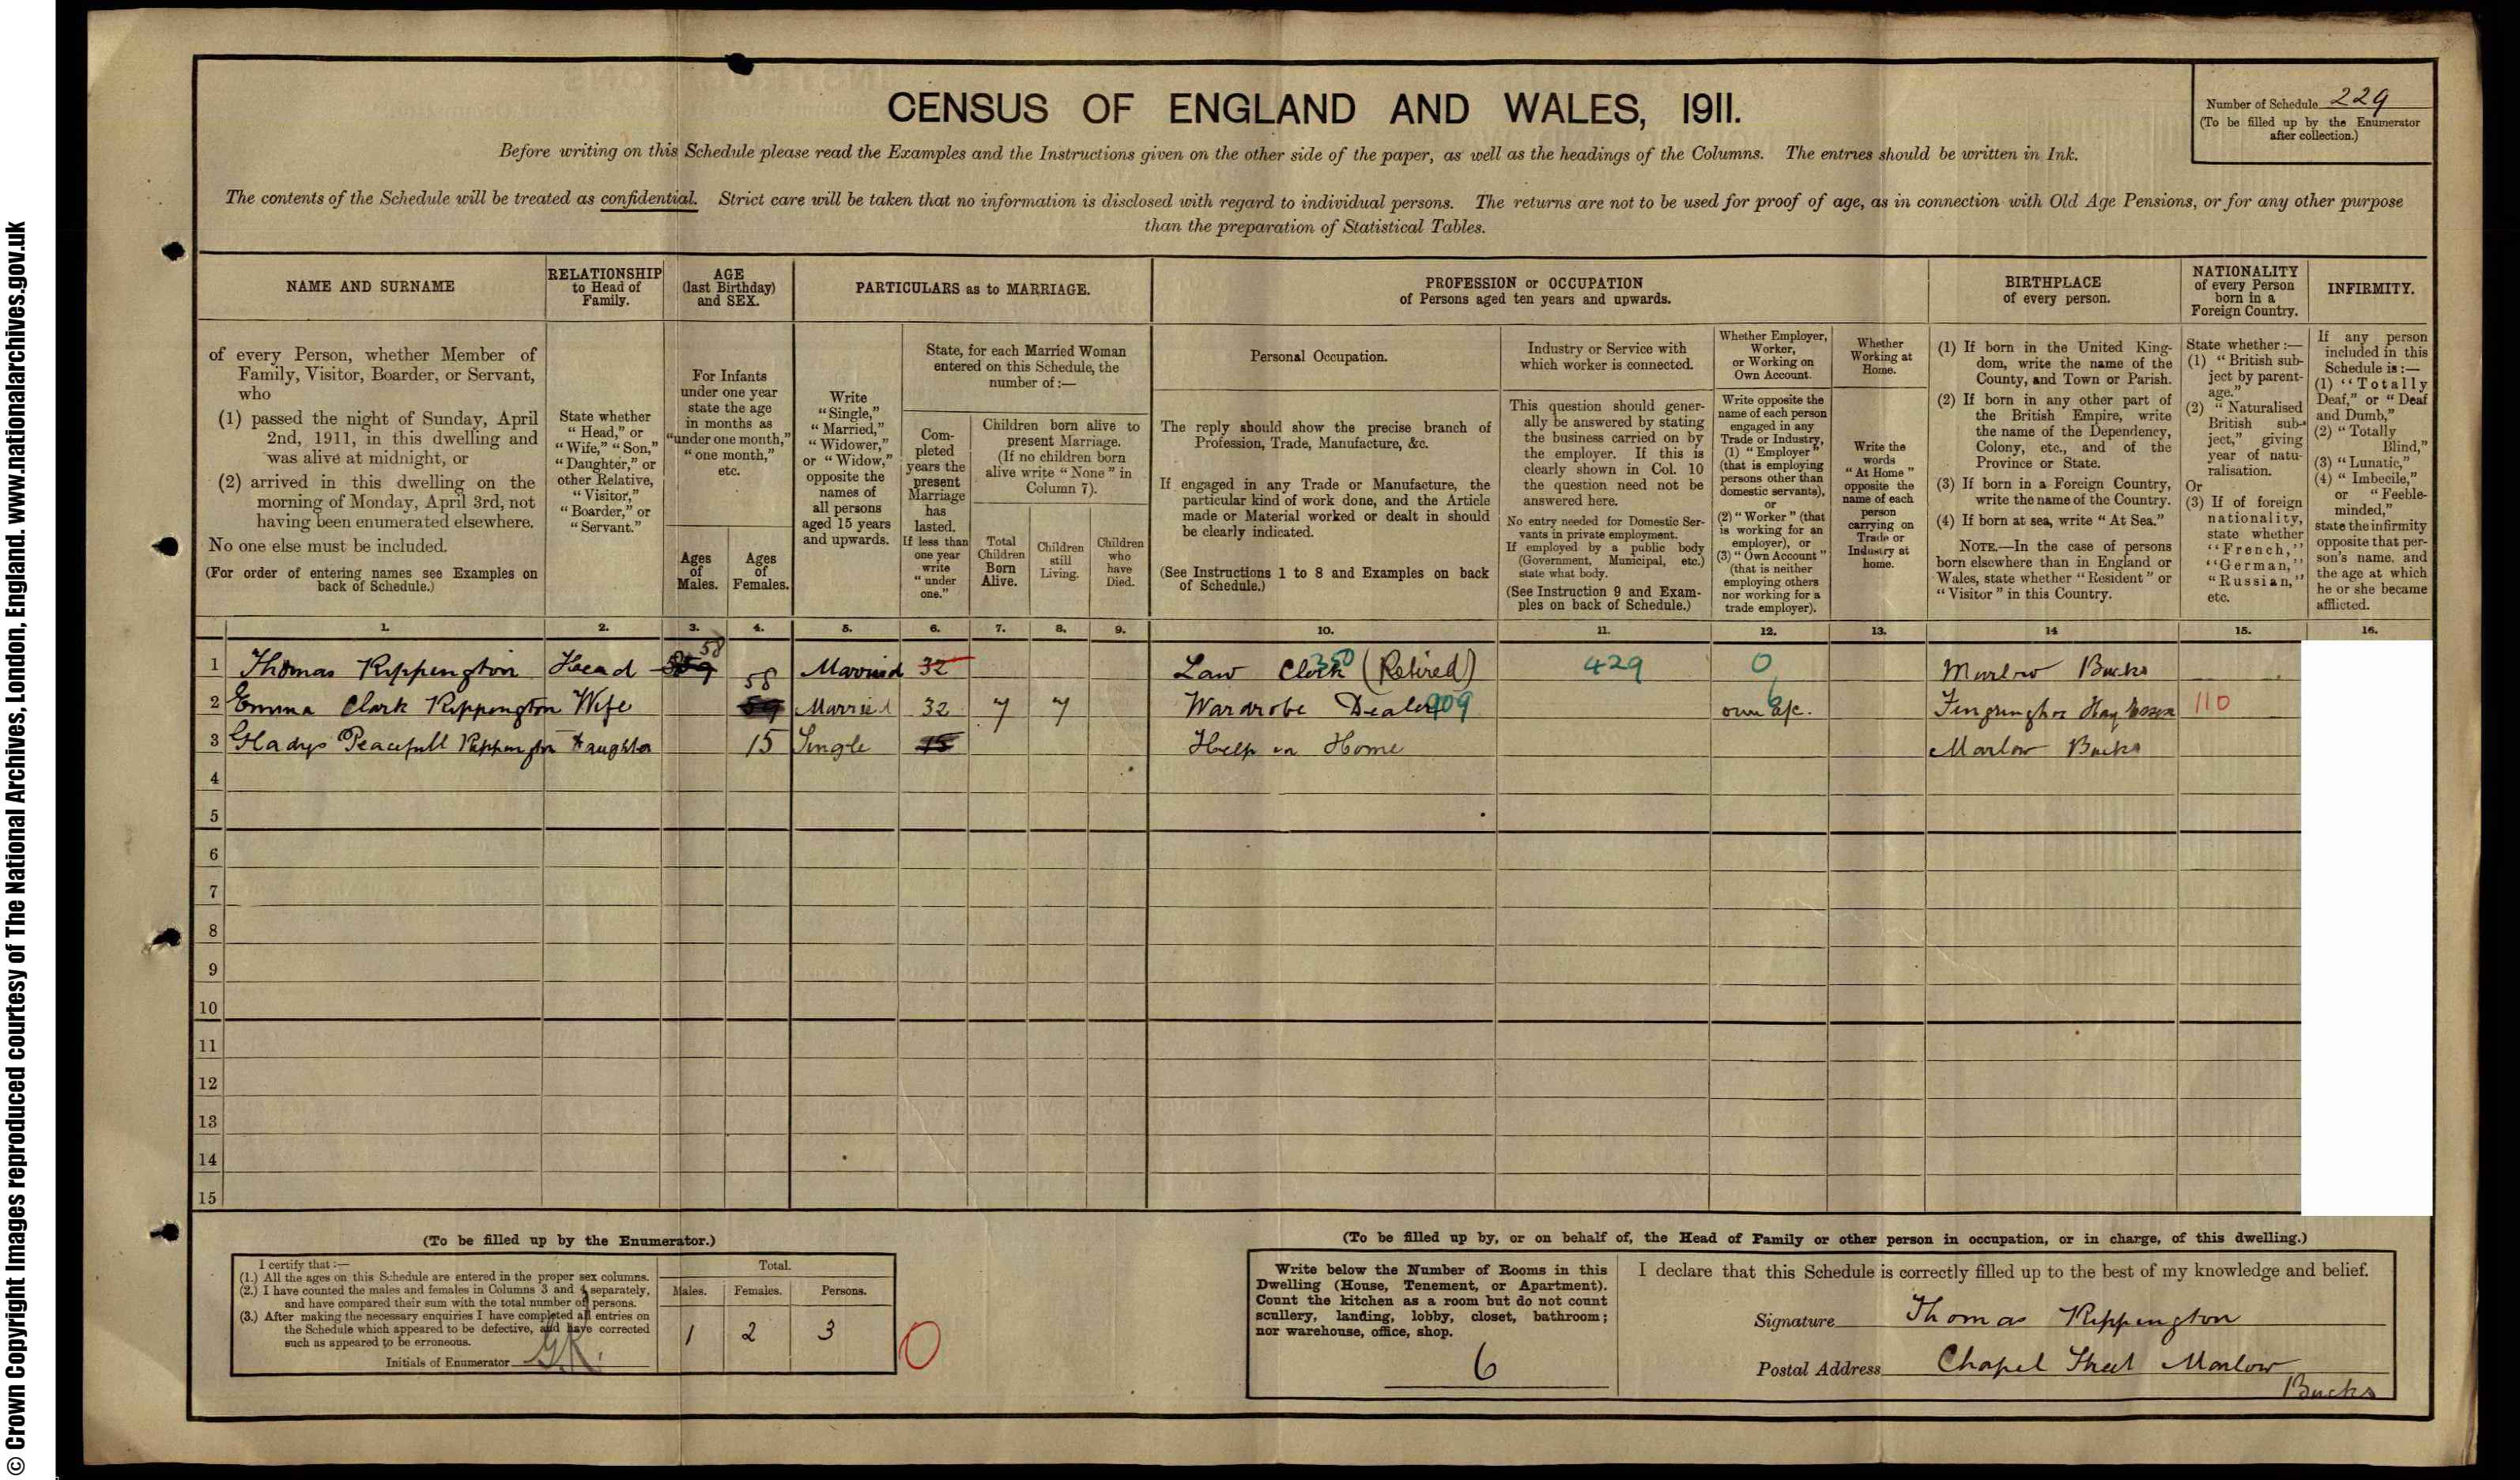 CENSUS OF ENGLAND AND WALES, 1911.
Number of Schedule 229
(To be filled up by the Enumerator
after collection.)
Before writing on this Schedule please read the Examples and the Instructions given on the other side of the paper, as well as the headings of the Columns. The entries should be written in Ink.
The contents of the Schedule will be treated as confidential. Strict care will be taken that no information is disclosed with regard to individual persons. The returns are not to be used for proof of age, as in connection with Old Age Pensions, or for any other purpose
than the preparation of Statistical Tables.
NAME AND SURNAME
of every Person, whether Member of
Family, Visitor, Boarder, or Servant,
who
(1) passed the night of Sunday, April
2nd, 1911, in this dwelling and
was alive at midnight, or
(2) arrived in this dwelling on the
morning of Monday, April 3rd, not
having been enumerated elsewhere.
No one else must be included.
(For order of entering names see Examples on
back of Schedule.)
RELATIONSHIP
to Head of
Family.
State whether
"Head," or
"Wife," "Son,"
"Daughter," or
other Relative,
"Visitor,"
"Boarder," or
"Servant."
AGE
(last Birthday)
and SEX.
For Infants
under one year
state the age
in months as
"under one month,"
"one month,"
etc.
Ages
of
Males.
Ages
of
Females.
PARTICULARS as to MARRIAGE.
Write
"Single,"
"Married,"
"Widower,"
or "Widow,"
opposite the
names of
all persons
aged 15 years
and upwards.
State, for each Married Woman
entered on this Schedule, the
number of :—
Com-
pleted
years the
present
Marriage
has
lasted.
If less than
one year
write
"under
one."
Children born alive to
present Marriage.
(If no children born
alive write "None" in
Column 7).
Total
Children
Born
Alive.
Children
still
Living.
Children
who
have
Died.
PROFESSION or OCCUPATION
of Persons aged ten years and upwards.
Personal Occupation.
The reply should show the precise branch of
Profession, Trade, Manufacture, &c.
If engaged in any Trade or Manufacture, the
particular kind of work done, and the Article
made or Material worked or dealt in should
be clearly indicated.
(See Instructions 1 to 8 and Examples on back
of Schedule.)
Industry or Service with
which worker is connected.
This question should gener-
ally be answered by stating
the business carried on by
the employer. If this is
clearly shown in Col. 10
the question need not be
answered here.
No entry needed for Domestic Ser-
vants in private employment.
If employed by a public body
(Government, Municipal, etc.)
state what body.
(See Instruction 9 and Exam-
ples on back of Schedule.)
Whether Employer,
Worker,
or Working on
Own Account.
Write opposite the
name of each person
engaged in any
Trade or Industry,
(1) "Employer"
(that is employing
persons other than
domestic servants),
or
(2) "Worker" (that
is working for an
employer), or
(3) "Own Account"
(that is neither
employing others
nor working for a
trade employer).
Whether
Working at
Home.
Write the
words
"At Home"
opposite the
name of each
person
carrying on
Trade or
Industry at
home.
BIRTHPLACE
of every person.
(1) If born in the United King-
dom, write the name of the
County, and Town or Parish.
(2) If born in any other part of
the British Empire, write
the name of the Dependency,
Colony, etc., and of the
Province or State.
(3) If born in a Foreign Country,
write the name of the Country.
(4) If born at sea, write "At Sea."
NOTE.—In the case of persons
born elsewhere than in England or
Wales, state whether "Resident" or
"Visitor" in this Country.
NATIONALITY
of every Person
born in a
Foreign Country.
State whether :—
(1) "British sub-
ject by parent-
age."
(2) "Naturalised
British sub-
ject," giving
year of natu-
ralisation.
Or
(3) If of foreign
nationality,
state whether
"French,"
"German,"
"Russian,"
etc.
INFIRMITY.
If any person
included in this
Schedule is :—
(1) "Totally
Deaf," or "Deaf
and Dumb,"
(2) "Totally
Blind,"
(3) "Lunatic,"
(4) "Imbecile,"
or "Feeble-
minded,"
state the infirmity
opposite that per-
son's name, and
the age at which
he or she became
afflicted.
1. 2. 3. 4. 5. 6. 7. 8. 9. 10. 11. 12. 13. 14 15. 16.
1 Thomas Rippington Head 58 Married 32 Law Clerk (Retired) 350 429 0 Marlow Bucks
2 Emma Clark Rippington Wife 58 Married 32 7 7 Wardrobe Dealer 909 own a/c. Fingringhoe Hay Essex 110
3 Gladys Peacefull Rippington Daughter 15 Single 15 Help in Home Marlow Bucks
4
5
6
7
8
9
10
11
12
13
14
15
(To be filled up by the Enumerator.)
I certify that :—
(1.) All the ages on this Schedule are entered in the proper sex columns.
(2.) I have counted the males and females in Columns 3 and 4 separately,
and have compared their sum with the total number of persons.
(3.) After making the necessary enquiries I have completed all entries on
the Schedule which appeared to be defective, and have corrected
such as appeared to be erroneous.
Initials of Enumerator G.K.
Total.
Males. Females. Persons.
1 2 3
0
(To be filled up by, or on behalf of, the Head of Family or other person in occupation, or in charge, of this dwelling.)
Write below the Number of Rooms in this
Dwelling (House, Tenement, or Apartment).
Count the kitchen as a room but do not count
scullery, landing, lobby, closet, bathroom;
nor warehouse, office, shop.
6
I declare that this Schedule is correctly filled up to the best of my knowledge and belief.
Signature Thomas Rippington
Postal Address Chapel Street Marlow
Bucks
© Crown Copyright Images reproduced courtesy of The National Archives, London, England. www.nationalarchives.gov.uk